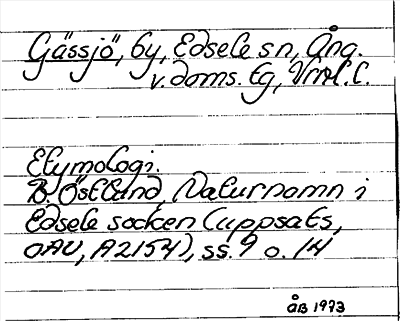 Gässjö, by, Edsele sn, Ång.
v. doms. tg, Vml. l.
Etymologi.
B. Östlund, Naturnamn i
Edsele socken (uppsats,
OAU, A2154), ss. 9 o. 14
ÅB 1973